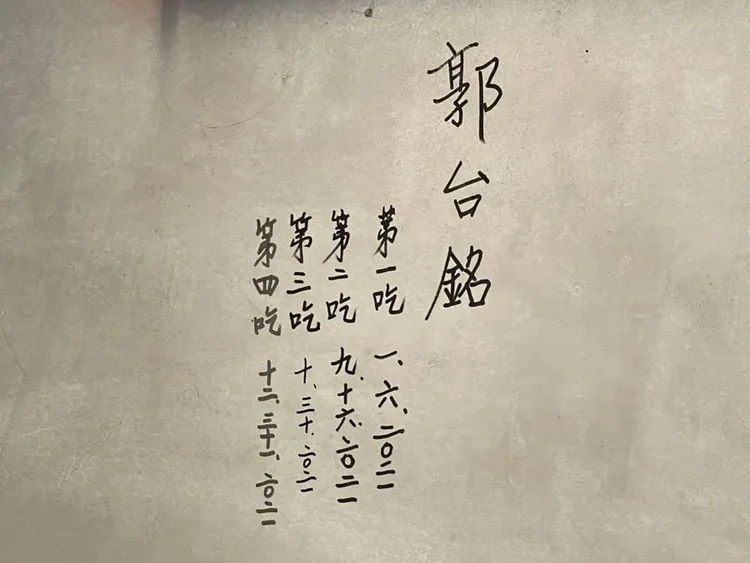 郭台銘
第一吃 一、六、二〇二一
第二吃 九、十六、二〇二一
第三吃 十、三十、二〇二一
第四吃 十二、三十一、二〇二一